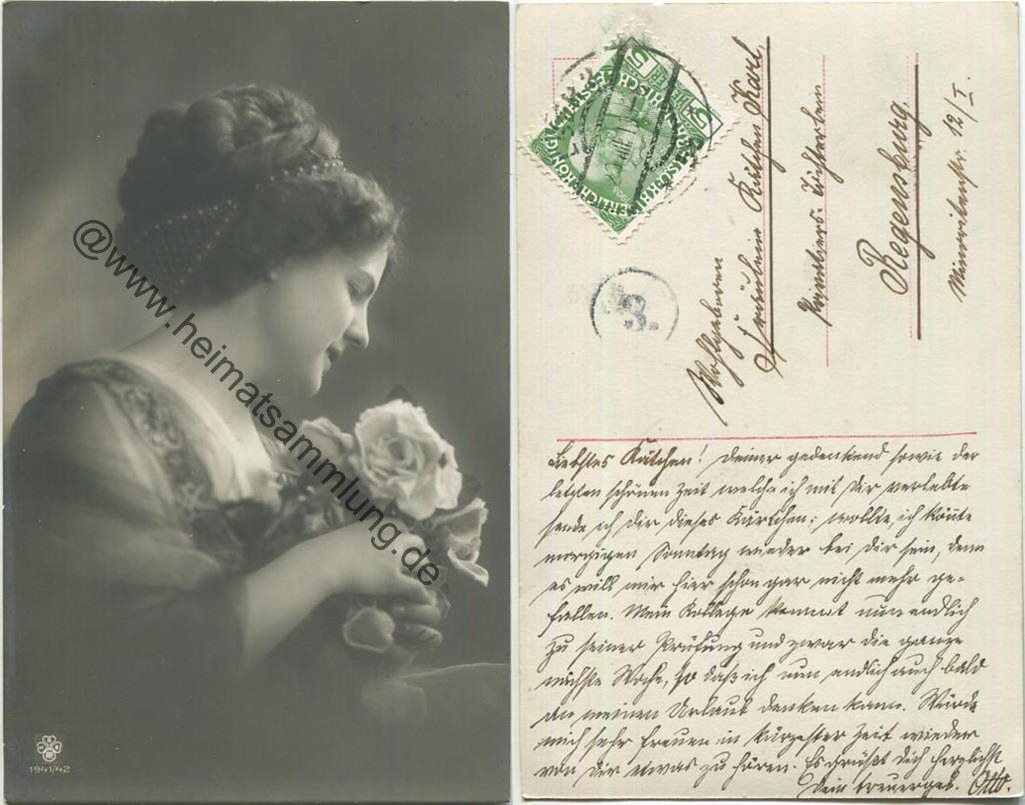 @www.heimatsammlung.de
1941/42
3.
Wohlgeboren
Fräulein Kätchen Karl,
Privatiers-Tochter
Regensburg.
Minoritenstr. 12/I.
Liebstes Kätchen! Deiner gedenkend sowie der
letzten schönen Zeit welche ich mit Dir verlebte
sende ich dir dieses Kärtchen; wollte, ich könnte
morgigen Sonntag wieder bei Dir sein, denn
es will mir hier schon gar nicht mehr ge-
fallen. Mein Kollege kommt nun endlich
zu seiner Prüfung und zwar die ganze
nächste Woche, so daß ich nun endlich auch bald
an meinen Urlaub denken kann. Würde
mich sehr freuen in kürzester Zeit wieder
von dir etwas zu hören. Es grüßt Dich herzlichst
Dein treuergeb. Otto.